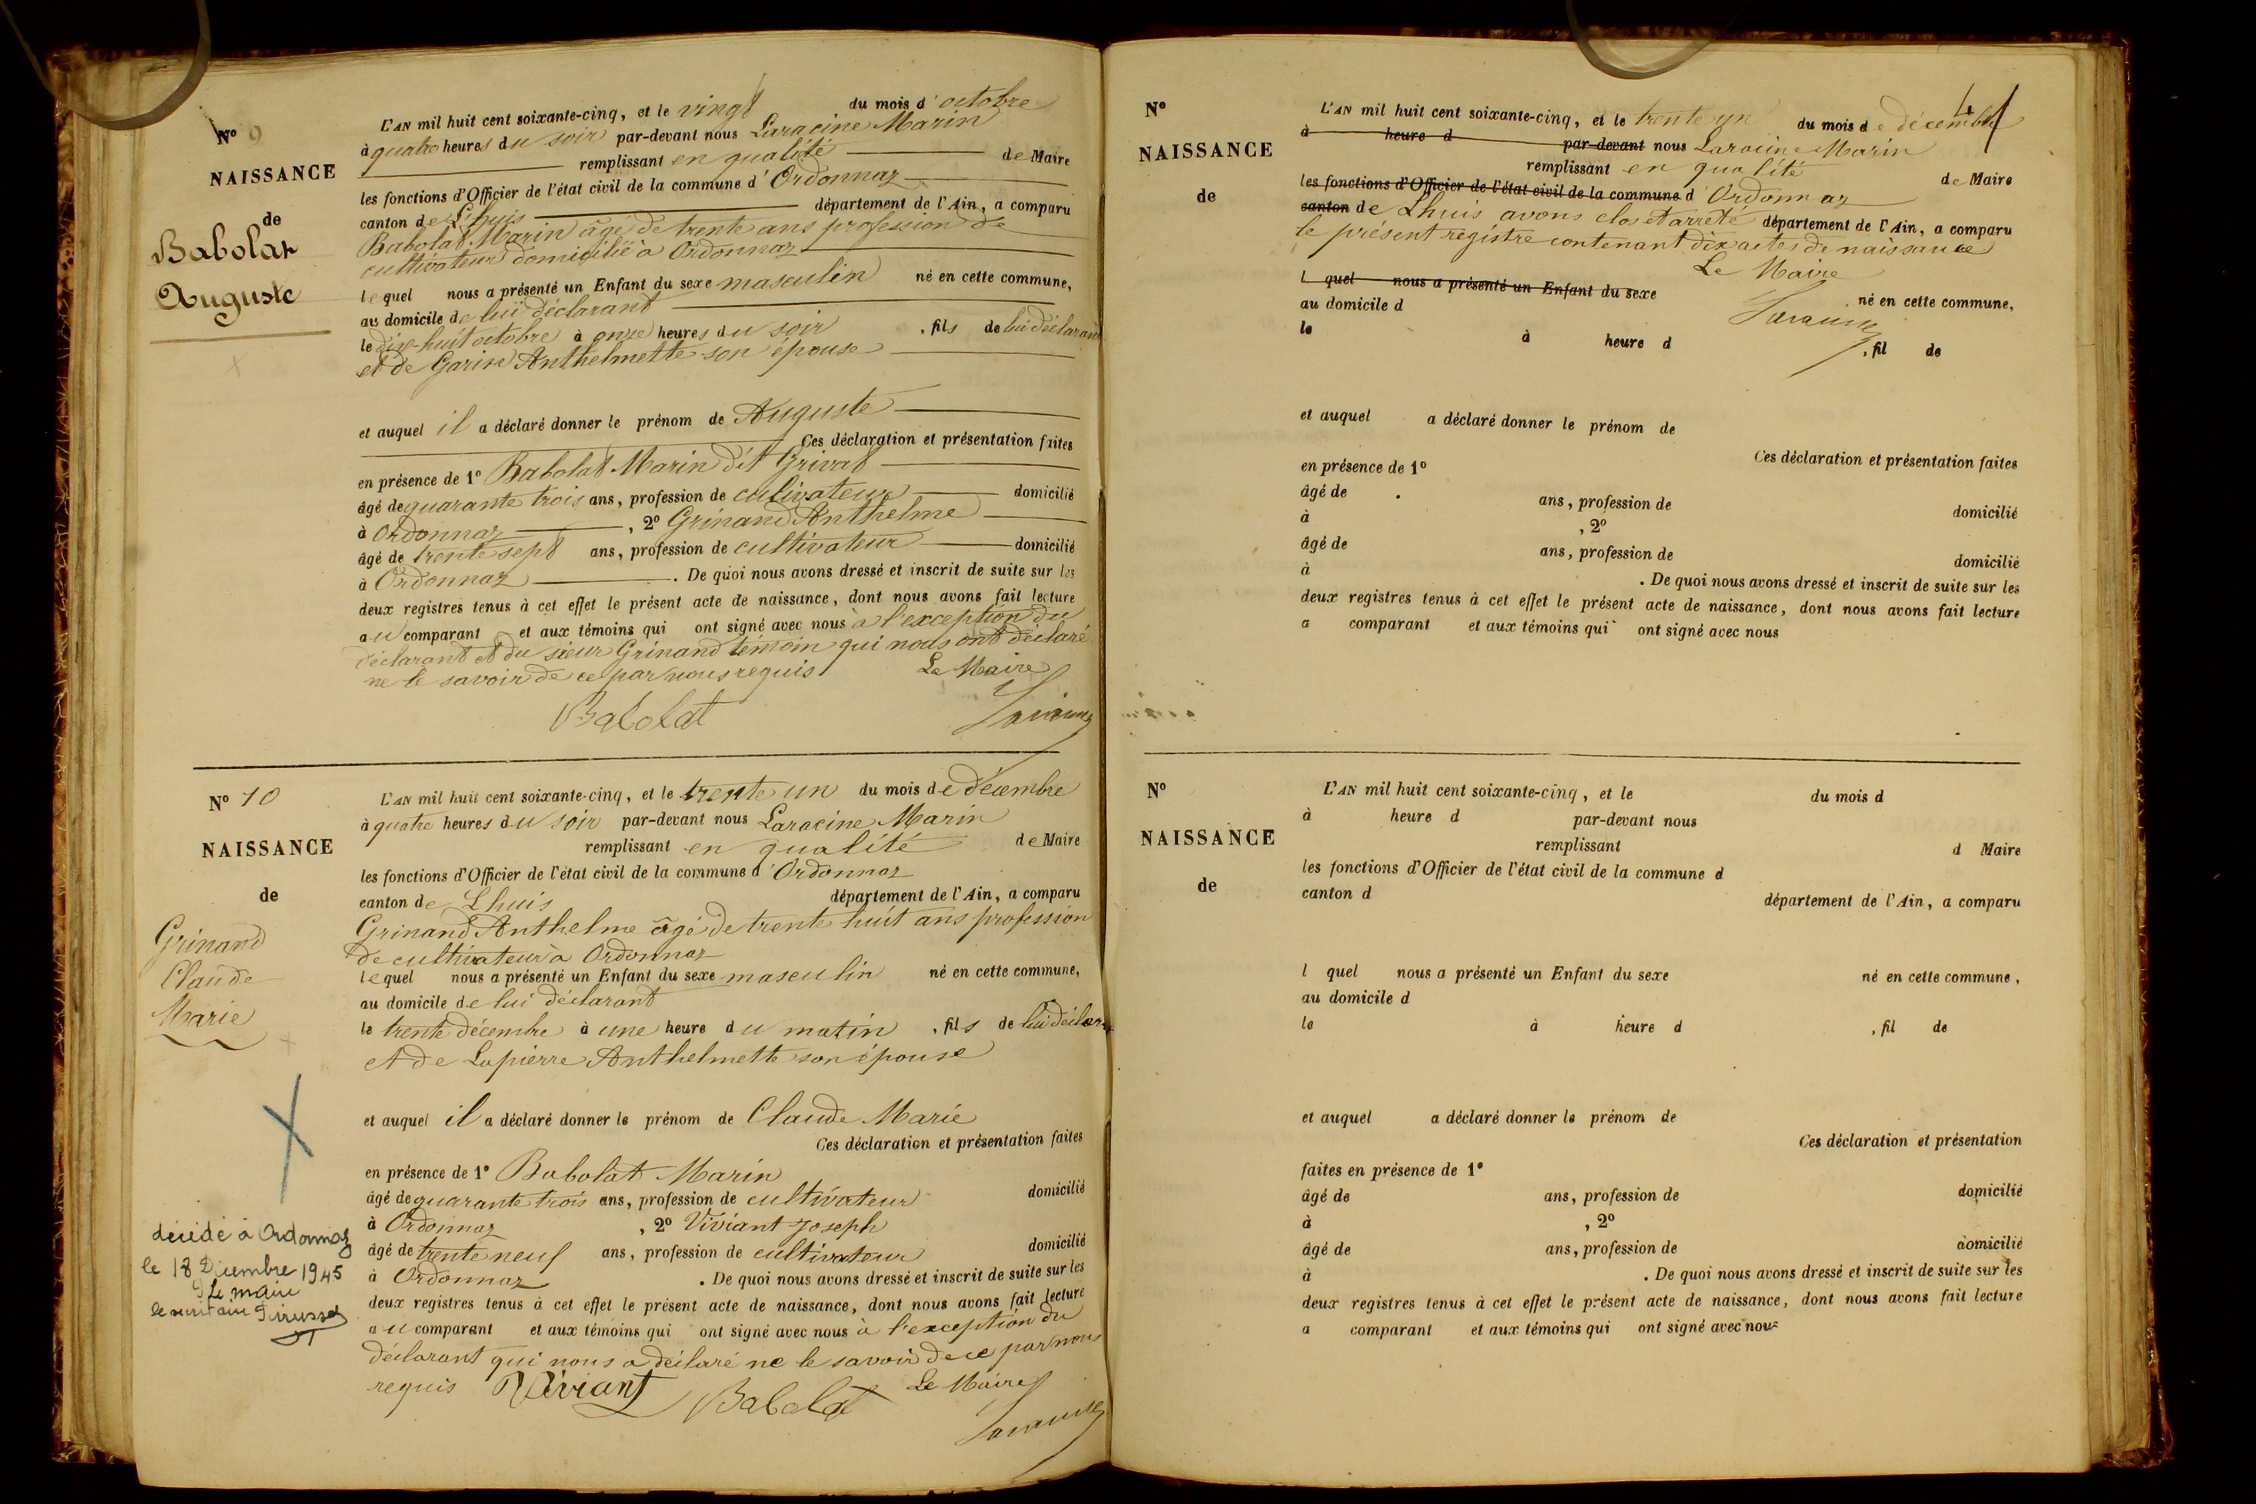 N° 9
NAISSANCE
de
Babolat
Auguste
L'AN mil huit cent soixante-cinq, et le vingt du mois d'octobre
à quatre heures du soir par-devant nous Laracine Marin
remplissant en qualité de Maire
les fonctions d'Officier de l'état civil de la commune d'Ordonnaz
canton de Lhuis département de l'Ain, a comparu
Babolat Marin âgé de trente ans profession de
cultivateur domicilié à Ordonnaz
lequel nous a présenté un Enfant du sexe masculin né en cette commune,
au domicile de lui déclarant
le dix-huit octobre à onze heures du soir, fils de lui déclarant
et de Garin Anthelmette son épouse
et auquel il a déclaré donner le prénom de Auguste
Ces déclaration et présentation faites
en présence de 1° Babolat Marin dit Grivat
âgé de quarante trois ans, profession de cultivateur domicilié
à Ordonnaz, 2° Grinand Anthelme
âgé de trente sept ans, profession de cultivateur domicilié
à Ordonnaz. De quoi nous avons dressé et inscrit de suite sur les
deux registres tenus à cet effet le présent acte de naissance, dont nous avons fait lecture
au comparant et aux témoins qui ont signé avec nous à l'exception du
déclarant et du sieur Grinand témoin qui nous ont déclaré
ne le savoir de ce par nous requis Le Maire
Babolat Laracine
N° 10
NAISSANCE
de
Grinand
Claude
Marie
décédé à Ordonnaz
le 18 Décembre 1945
Le maire
L'AN mil huit cent soixante-cinq, et le trente un du mois de décembre
à quatre heures du soir par-devant nous Laracine Marin
remplissant en qualité de Maire
les fonctions d'Officier de l'état civil de la commune d'Ordonnaz
canton de Lhuis département de l'Ain, a comparu
Grinand Anthelme âgé de trente huit ans profession
de cultivateur à Ordonnaz
lequel nous a présenté un Enfant du sexe masculin né en cette commune,
au domicile de lui déclarant
le trente décembre à une heure du matin, fils de lui déclarant
et de Lapierre Anthelmette son épouse
et auquel il a déclaré donner le prénom de Claude Marie
Ces déclaration et présentation faites
en présence de 1° Babolat Marin
âgé de quarante trois ans, profession de cultivateur domicilié
à Ordonnaz, 2° Viviant Joseph
âgé de trente neuf ans, profession de cultivateur domicilié
à Ordonnaz. De quoi nous avons dressé et inscrit de suite sur les
deux registres tenus à cet effet le présent acte de naissance, dont nous avons fait lecture
au comparant et aux témoins qui ont signé avec nous à l'exception du
déclarant qui nous a déclaré ne le savoir de ce par nous
requis Viviant Babolat Le Maire
Laracine
N°
NAISSANCE
de
L'AN mil huit cent soixante-cinq, et le trente un du mois de décembre
à heure d par-devant nous Laracine Marin
remplissant en qualité de Maire
les fonctions d'Officier de l'état civil de la commune d'Ordonnaz
canton de Lhuis avons clos et arrêté département de l'Ain, a comparu
le présent registre contenant dix actes de naissance
Le Maire
l quel nous a présenté un Enfant du sexe né en cette commune,
au domicile d Laracine
le à heure d , fil de
et auquel a déclaré donner le prénom de
Ces déclaration et présentation faites
en présence de 1°
âgé de ans, profession de domicilié
à , 2°
âgé de ans, profession de domicilié
à . De quoi nous avons dressé et inscrit de suite sur les
deux registres tenus à cet effet le présent acte de naissance, dont nous avons fait lecture
a comparant et aux témoins qui ont signé avec nous
N°
NAISSANCE
de
L'AN mil huit cent soixante-cinq, et le du mois d
à heure d par-devant nous
remplissant d Maire
les fonctions d'Officier de l'état civil de la commune d
canton d département de l'Ain, a comparu
l quel nous a présenté un Enfant du sexe né en cette commune,
au domicile d
le à heure d , fil de
et auquel a déclaré donner le prénom de
Ces déclaration et présentation
faites en présence de 1°
âgé de ans, profession de domicilié
à , 2°
âgé de ans, profession de domicilié
à . De quoi nous avons dressé et inscrit de suite sur les
deux registres tenus à cet effet le présent acte de naissance, dont nous avons fait lecture
a comparant et aux témoins qui ont signé avec nous